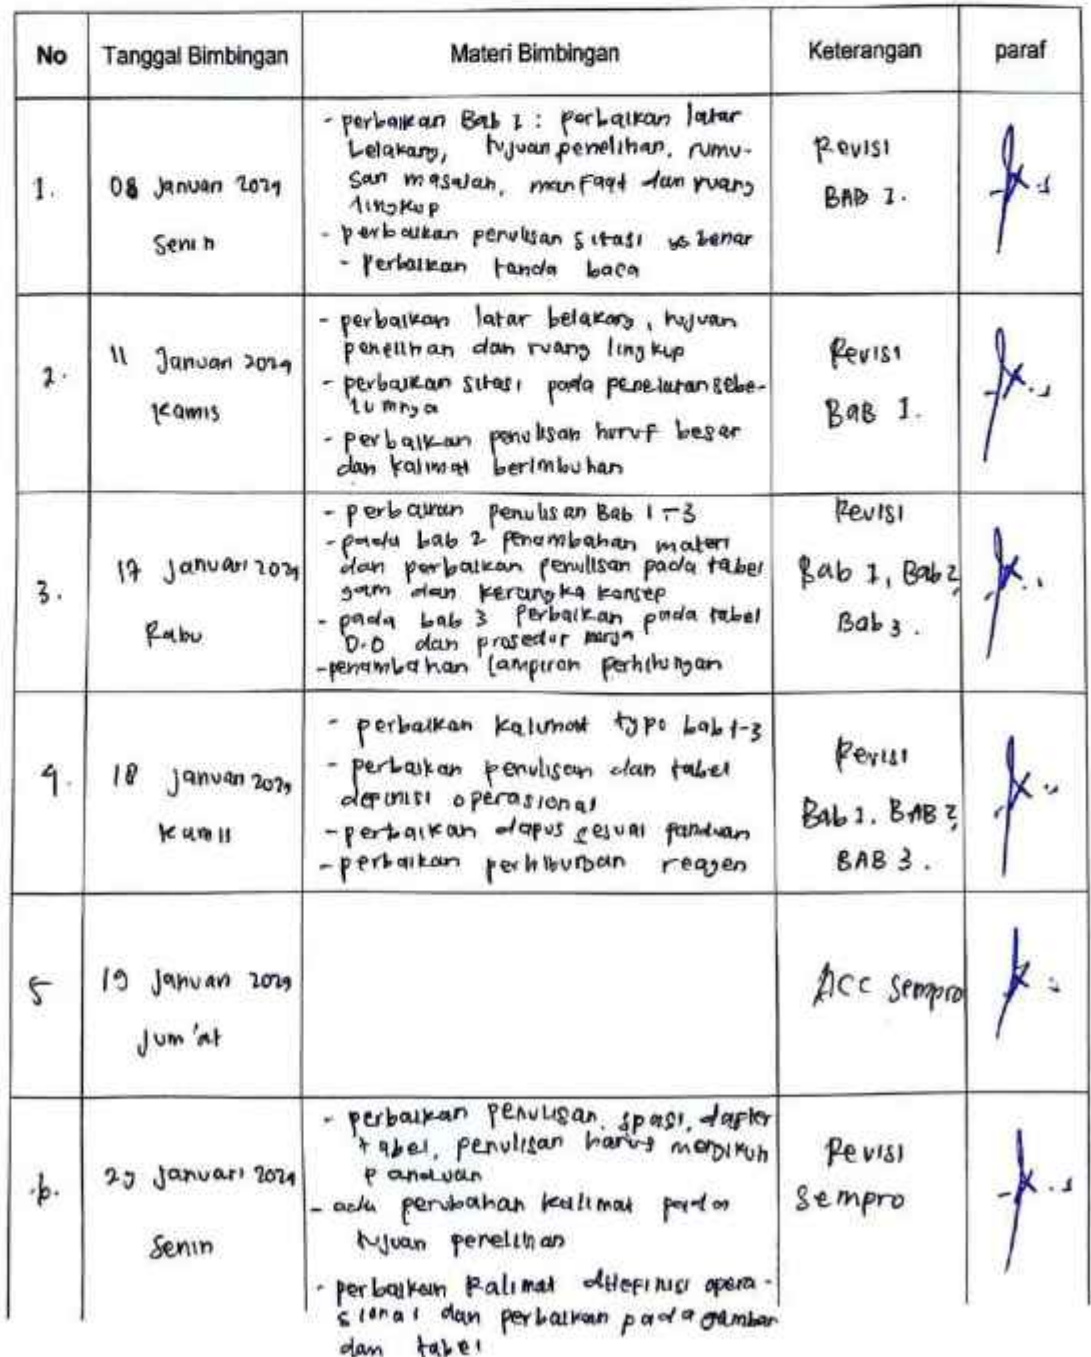 No Tanggal Bimbingan Materi Bimbingan Keterangan paraf
1.
08 Januari 2024
Senin
- perbaikan Bab 1 : perbaikan latar
belakang, tujuan penelitian, rumu-
san masalah, manfaat dan ruang
lingkup
- perbaikan penulisan sitasi yg benar
- Perbaikan tanda baca
Revisi
BAB 1.
2.
11 Januari 2024
Kamis
- perbaikan latar belakang, tujuan
penelitian dan ruang lingkup
- perbaikan sitasi pada penelitian sebe-
lumnya
- perbaikan penulisan huruf besar
dan kalimat berimbuhan
Revisi
Bab 1.
3.
17 Januari 2024
Rabu
- perbaikan penulisan Bab 1-3
- pada bab 2 penambahan materi
dan perbaikan penulisan pada tabel
dan kerangka konsep
- pada bab 3 Perbaikan pada tabel
D.O dan prosedur
- penambahan lampiran perhitungan
Revisi
Bab 1, Bab 2,
Bab 3.
4.
18 Januari 2024
Kamis
- perbaikan kalimat typo bab 1-3
- perbaikan penulisan dan tabel
definisi operasional
- perbaikan dapus sesuai panduan
- perbaikan reagen
Revisi
Bab 1, BAB 2,
BAB 3.
5
19 Januari 2024
Jum'at
ACC Sempro
6.
29 Januari 2024
Senin
- perbaikan penulisan, spasi, dafter
tabel, penulisan harus mengikuti
panduan
- ada perubahan kalimat pada
tujuan penelitian
- perbaikan kalimat definisi opera-
sional dan perbaikan pada gambar
dan tabel
Revisi
Sempro